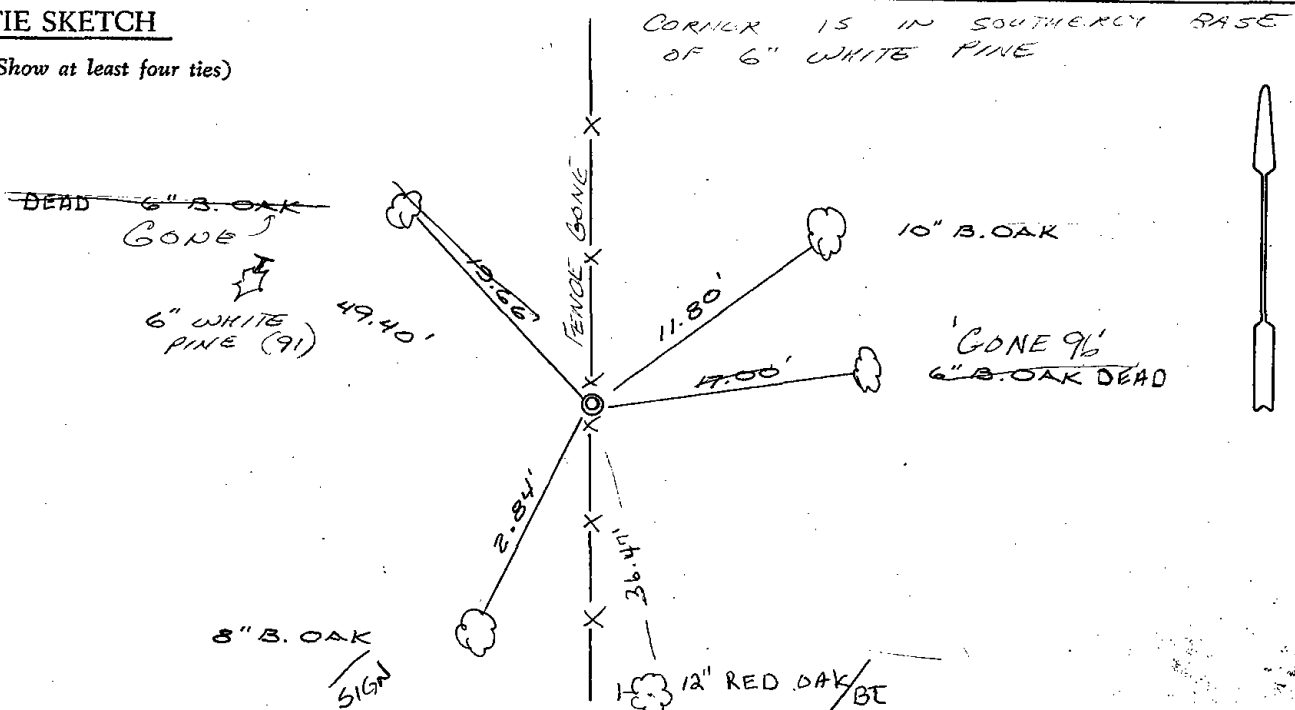 TIE SKETCH
(Show at least four ties)
CORNER IS IN SOUTHERLY BASE
OF 6" WHITE PINE
DEAD 6" B. OAK
GONE
6" WHITE
PINE (91)
49.40'
FENCE GONE
10" B. OAK
11.80'
GONE 96'
6" B. OAK DEAD
17.00'
2.84'
36.41'
8" B. OAK
SIGN
12" RED OAK/BT